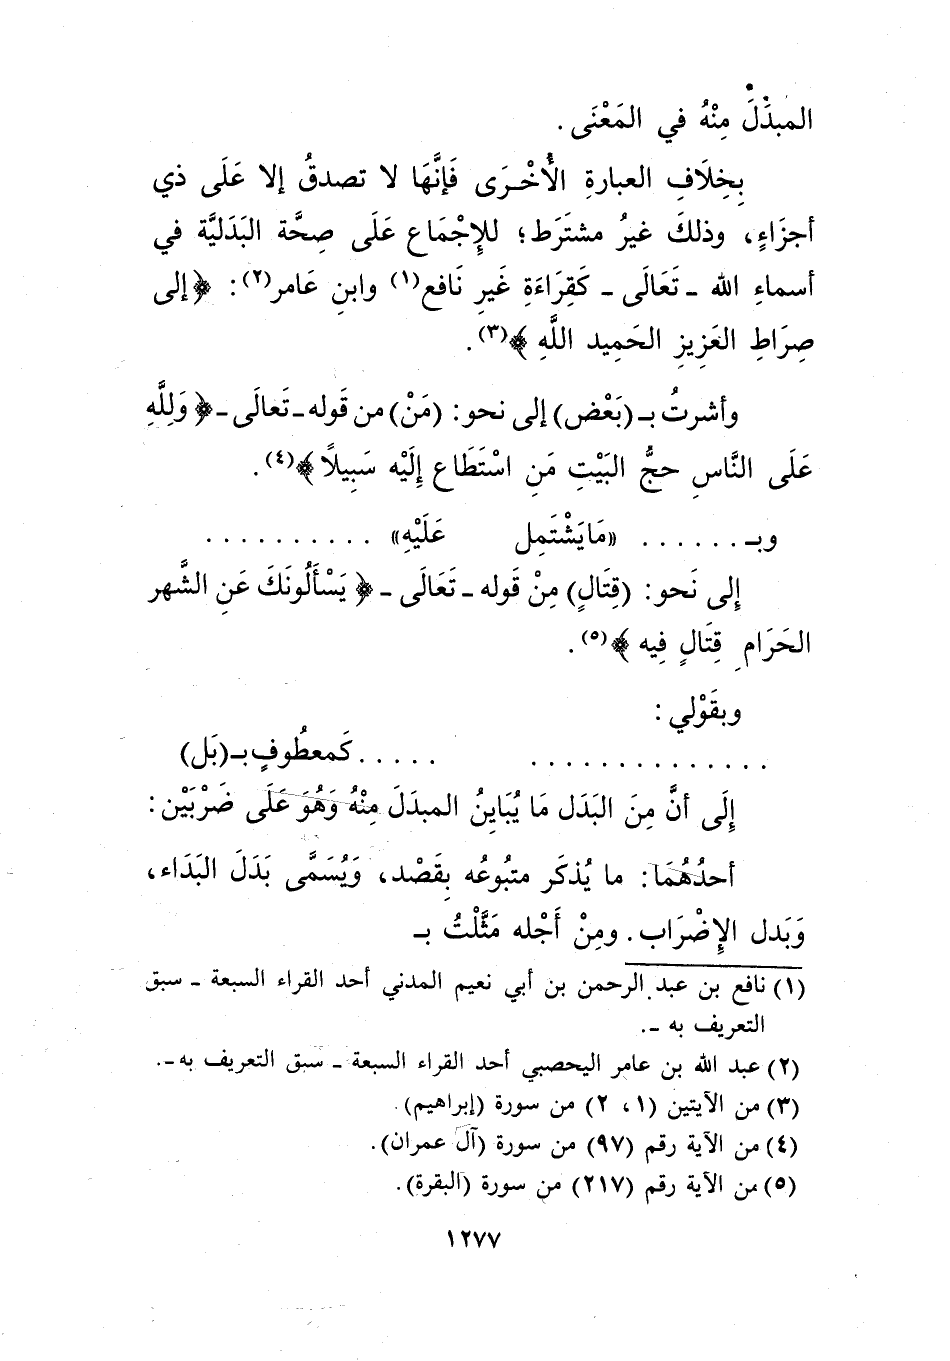 المبدَلَ مِنْهُ في المَعْنَى .
بِخِلَافِ العبارةِ الأُخْرَى فَإنَّهَا لا تصدقُ إلا عَلَى ذي
أجزَاءٍ، وذلكَ غيرُ مشتَرَط؛ للإجْمَاع عَلَى صِحَّة البَدَليَّة في
أسماءِ الله ـ تَعَالَى ـ كَقِرَاءَةِ غَيرِ نَافع(١) وابنِ عَامر(٢): ﴿إلى
صِرَاطِ العَزِيزِ الحَمِيد اللَّهِ﴾(٣).
وأشرتُ بـ (بَعْض) إلى نحو: (مَنْ) من قَوله ـ تَعالَى ـ ﴿وَلِلَّهِ
عَلَى النَّاسِ حجُّ البَيْتِ مَنِ اسْتَطَاع إِلَيْه سَبِيلاً﴾(٤).
وبـ . . . . . . «مَايَشْتَمِل عَلَيْهِ» . . . . . . . . . .
إلى نَحو: (قِتَالٍ) مِنْ قَوله ـ تَعَالَى ـ ﴿يَسْأَلُونَكَ عَنِ الشَّهر
الحَرَامِ قِتَالٍ فِيه﴾(٥).
وبقَوْلي :
. . . . . . . . . . . . . . . . . . . كَمعطُوفٍ بـ(بَل)
إِلَى أنَّ مِنَ البَدَل مَا يُبَاينُ المبدَلَ مِنْهُ وَهُوَ عَلَى ضَرْبَيْن :
أحدُهُمَا: ما يُذكَر متبُوعُه بِقَصْد، وَيُسَمَّى بَدَلَ البَدَاء،
وَبَدل الإضْرَاب. ومِنْ أَجْله مَثَّلْتُ بـ
(١) نافع بن عبد الرحمن بن أبي نعيم المدني أحد القراء السبعة ـ سبق
التعريف به ـ.
(٢) عبد الله بن عامر اليحصبي أحد القراء السبعة ـ سبق التعريف به ـ.
(٣) من الآيتين (١، ٢) من سورة (إبراهيم).
(٤) من الآية رقم (٩٧) من سورة (آل عمران).
(٥) من الآية رقم (٢١٧) من سورة (البقرة).
١٢٧٧